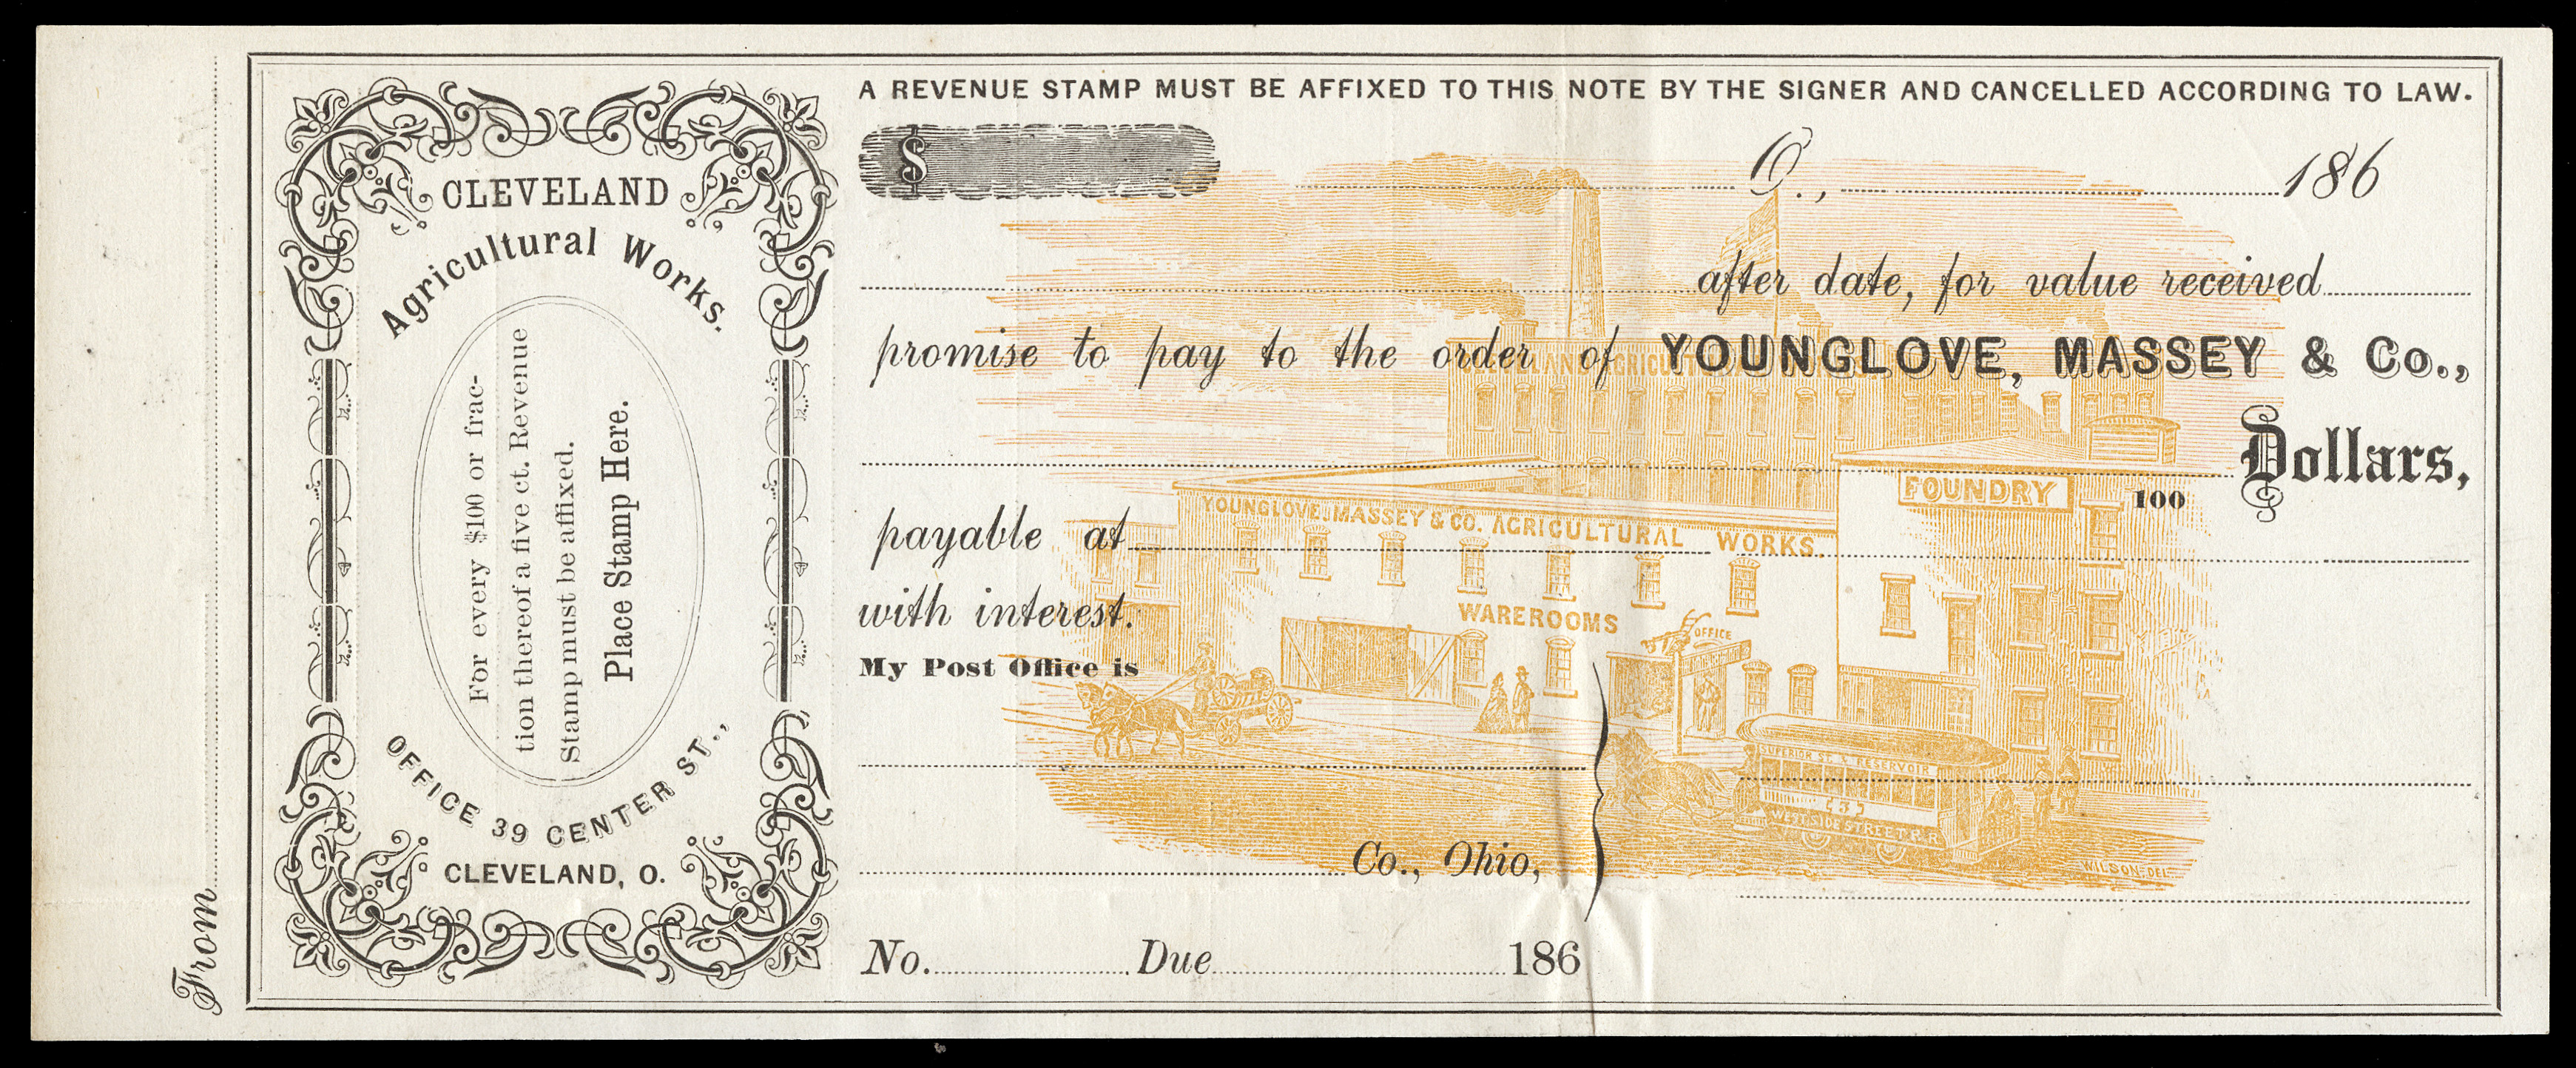 A REVENUE STAMP MUST BE AFFIXED TO THIS NOTE BY THE SIGNER AND CANCELLED ACCORDING TO LAW.
CLEVELAND
Agricultural Works.
For every $100 or frac-
tion thereof a five ct. Revenue
Stamp must be affixed.
Place Stamp Here.
OFFICE 39 CENTER ST.,
CLEVELAND, O.
From
$
O., 186
after date, for value received
promise to pay to the order of YOUNGLOVE, MASSEY & Co.,
Dollars,
100
payable at
with interest.
My Post Office is
Co., Ohio,
No. Due 186
AGRICULT
YOUNGLOVE, MASSEY & CO. AGRICULTURAL WORKS.
FOUNDRY
WAREROOMS
OFFICE
SUPERIOR ST. & RESERVOIR
3
WEST SIDE STREET R.R.
WILSON-DEL